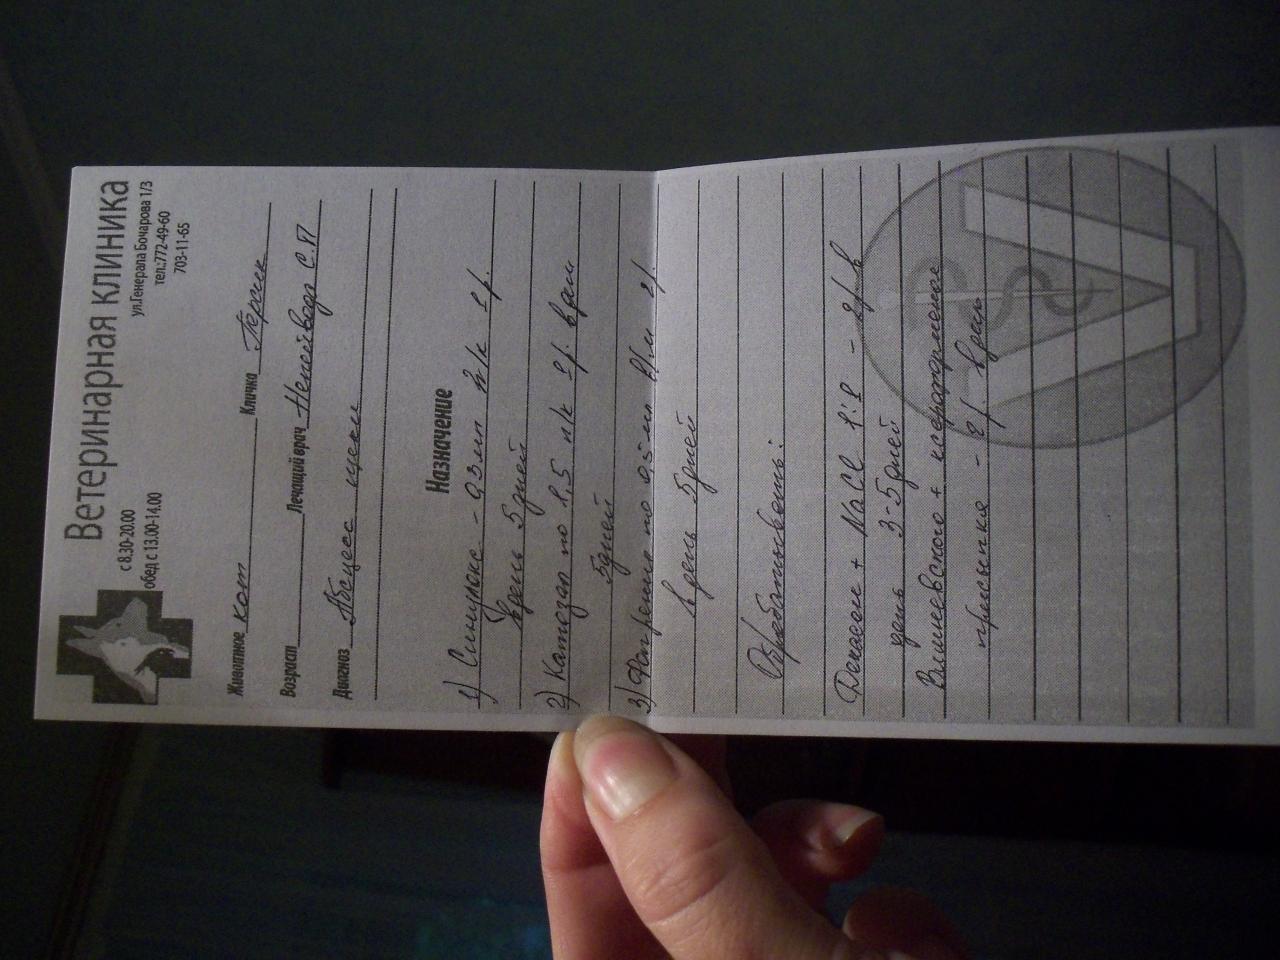 Ветеринарная клиника
с 8.30-20.00
обед с 13.00-14.00
ул.Генерала Бочарова 1/3
тел.:772-49-60
703-11-65
Животное кот Кличка
Возраст Лечащий врач Непейвода С.П
Диагноз Абсцесс щеки
Назначение
1) Синулокс - 0,3 мл п/к 1р.
в день 5 дней
2) Катозал по 1,5 п/к 1р. в день
5 дней
3) по 0,5 мл в/м
в день 5 дней
Обрабатывать:
Декасан + NaCl 1:1 - 2р в
день 3-5 дней
Вишневского + ксероформ
присыпка - 2р. в день